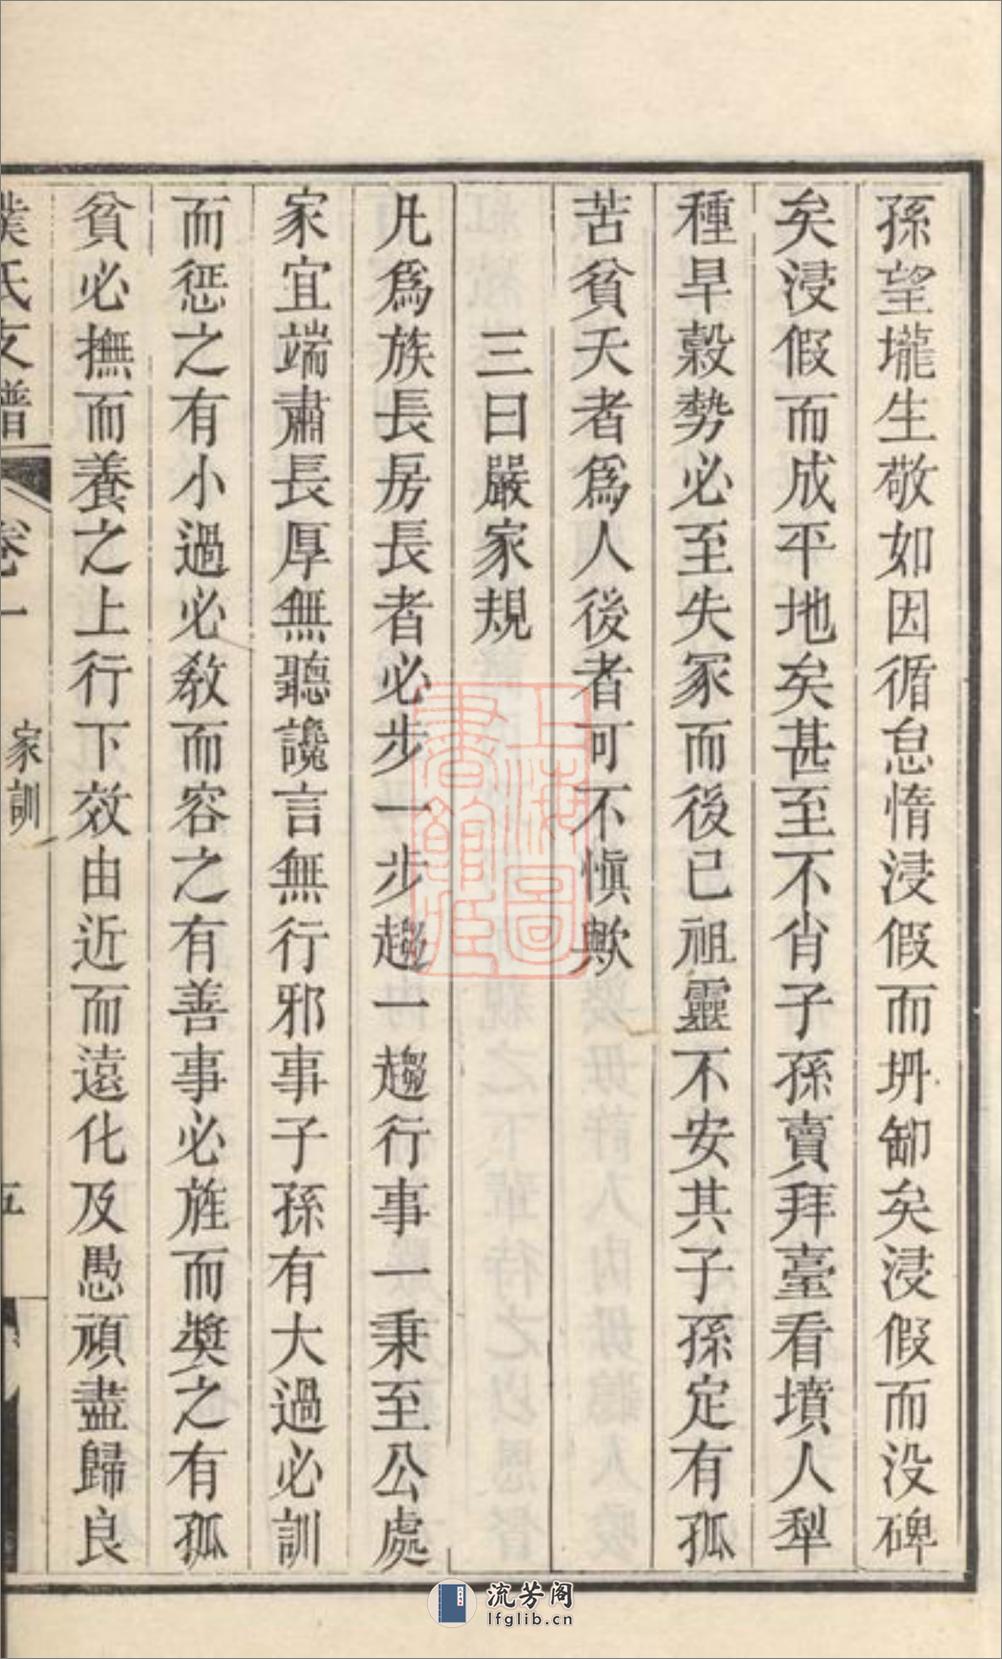 孫望壠生敬如因循怠惰浸假而坍卸矣浸假而没碑
矣浸假而成平地矣甚至不肖子孫賣拜臺看墳人犁
種旱穀勢必至失冢而後已祖靈不安其子孫定有孤
苦貧夭者爲人後者可不愼歟
三曰嚴家規
凡爲族長房長者必步一步趨一趨行事一秉至公處
家宜端肅長厚無聽讒言無行邪事子孫有大過必訓
而懲之有小過必敎而容之有善事必旌而奬之有孤
貧必撫而養之上行下效由近而遠化及愚頑盡歸良
氏支譜
卷一
家訓
五
上海圖書館藏
流芳阁
lfglib.cn